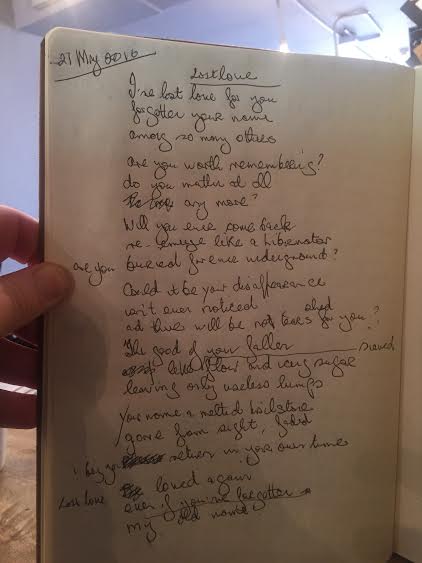 21 May 2016
Lost love
I've lost love for you
forgotten your name
among so many others
Are you worth remembering?
do you matter at all
any more?
Will you ever come back
re-emerge like a hibernator
are you buried forever underground?
Could it be your disappearance
isn't even noticed
and there will be no tears shed for you?
The good of your fallen sieved
like flour and icing sugar
leaving only useless lumps
Your name a melted
gone from sight, faded
I beg you return in your own time
Lost love loved again
even if you've forgotten
my old name